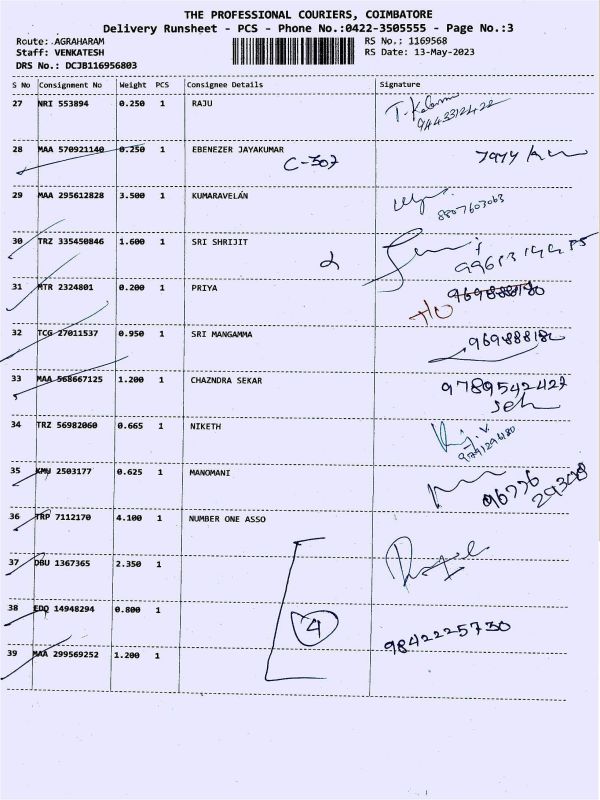 THE PROFESSIONAL COURIERS, COIMBATORE
Delivery Runsheet - PCS - Phone No.:0422-3505555 - Page No.:3
Route: AGRAHARAM RS No.: 1169568
Staff: VENKATESH RS Date: 13-May-2023
DRS No.: DCJB116956803
S No Consignment No Weight PCS Consignee Details Signature
27 NRI 553894 0.250 1 RAJU
9443312422
28 MAA 570921140 0.250 1 EBENEZER JAYAKUMAR
C-307
29 MAA 295612828 3.500 1 KUMARAVELAN
8807603063
30 TRZ 335450846 1.600 1 SRI SHRIJIT
31 MTR 2324801 0.200 1 PRIYA
32 TCG 27011537 0.950 1 SRI MANGAMMA
33 MAA 568667125 1.200 1 CHAZNDRA SEKAR
9789542422
34 TRZ 56982060 0.665 1 NIKETH
35 KMU 2503177 0.625 1 MANOMANI
96776
29308
36 TRP 7112170 4.100 1 NUMBER ONE ASSO
37 DBU 1367365 2.350 1
38 EDQ 14948294 0.800 1
4
9842225730
39 MAA 299569252 1.200 1